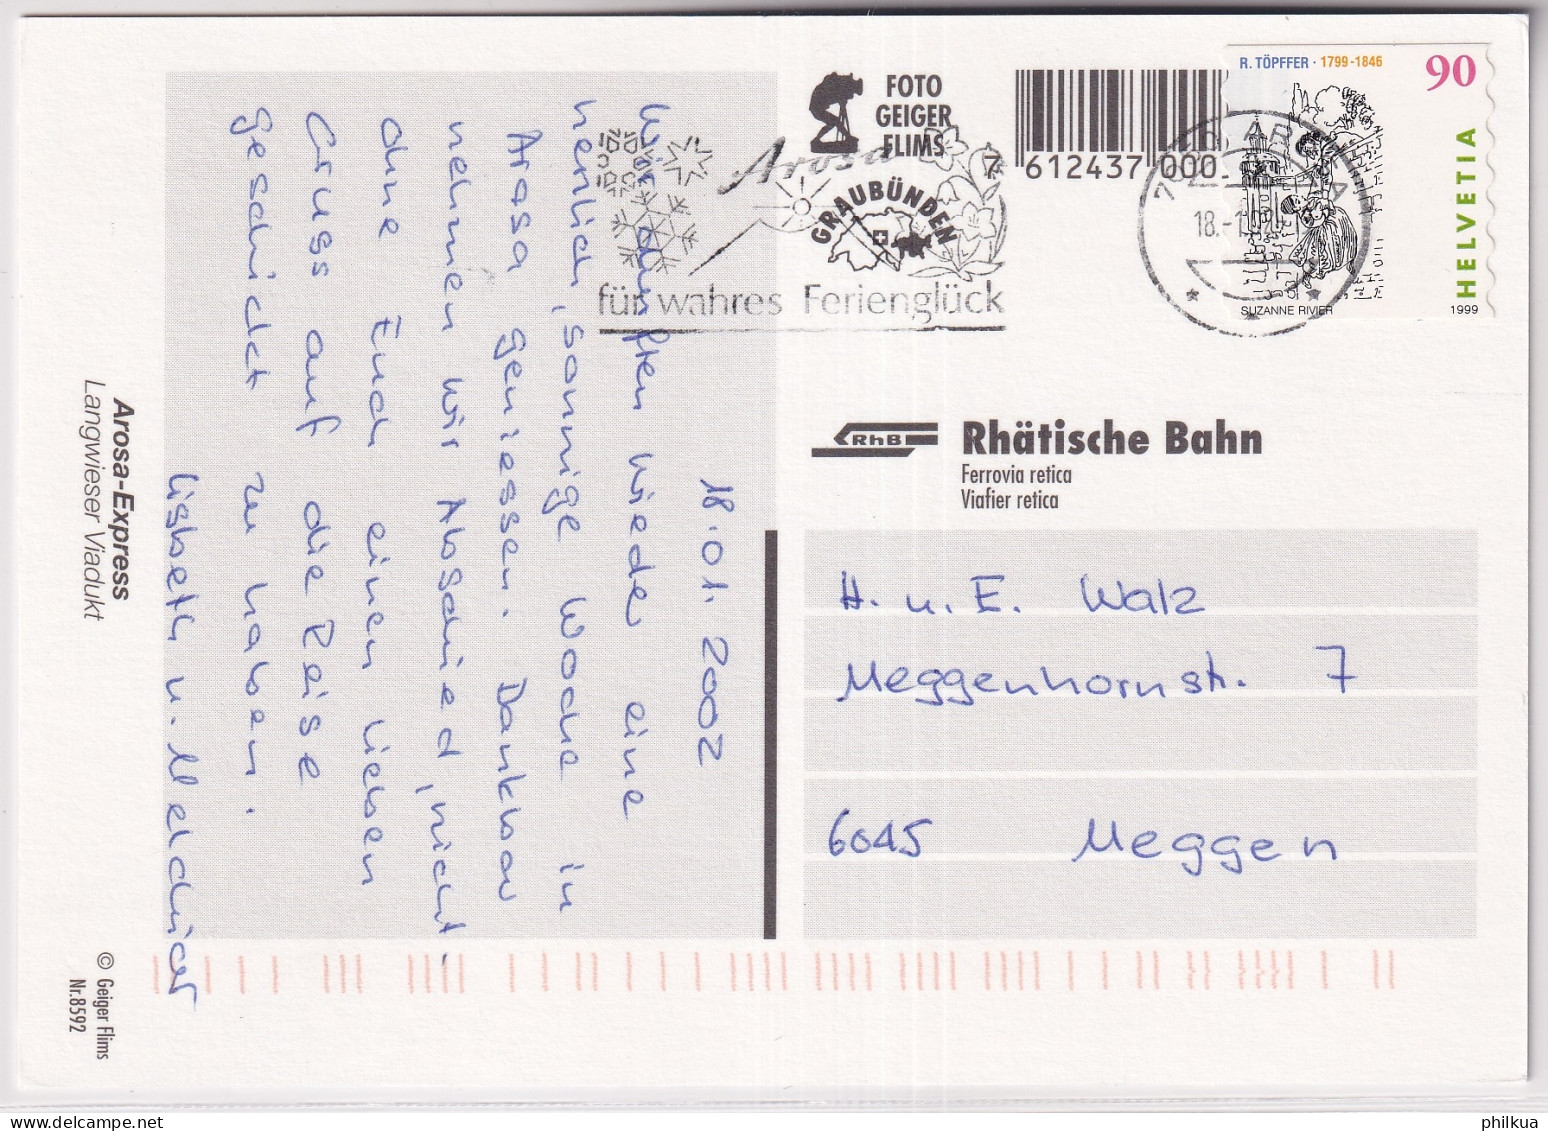 18.01.2002
Wir durften wieder eine
herrlich, sonnige Woche in
Arosa geniessen. Dankbar
nehmen wir Abschied, nicht
ohne Euch einen lieben
Gruss auf die Reise
geschickt zu haben.
Lisbeth u. Melchior
Arosa-Express
Langwieser Viadukt
© Geiger Flims
Nr.8592
FOTO
GEIGER
FLIMS
GRAUBÜNDEN
7 612437 000
Arosa
für wahres Ferienglück
AROSA
18.-1.02
R. TÖPFFER · 1799-1846
90
HELVETIA
SUZANNE RIVIER
1999
RhB
Rhätische Bahn
Ferrovia retica
Viafier retica
H. u. E. Walz
Meggenhornstr. 7
6045 Meggen
philkua